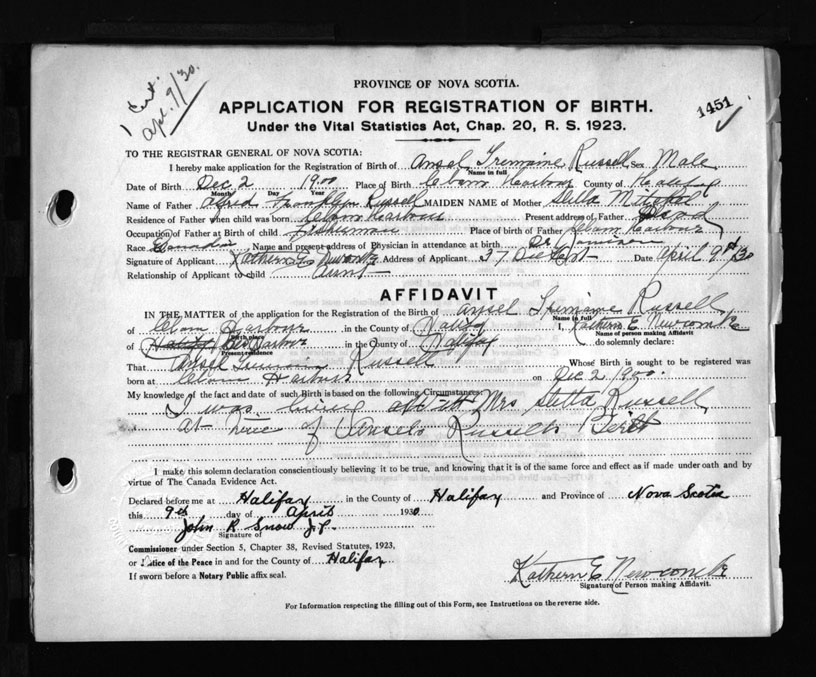 1 Cert.
Apl. 9/30.
1451
PROVINCE OF NOVA SCOTIA.
APPLICATION FOR REGISTRATION OF BIRTH.
Under the Vital Statistics Act, Chap. 20, R. S. 1923.
TO THE REGISTRAR GENERAL OF NOVA SCOTIA:
I hereby make application for the Registration of Birth of Ansel Tremaine Russell Sex Male
Name in full
Date of Birth Dec 2 1900 Place of Birth Clam Harbour County of Halifax
Month Day Year
Name of Father Alfred Franklyn Russell MAIDEN NAME of Mother Stella
Residence of Father when child was born Clam Harbour Present address of Father Dead
Occupation of Father at Birth of child Fisherman Place of birth of Father Clam Harbour
Race Canadian Name and present address of Physician in attendance at birth Dr Jamison
Signature of Applicant Kathern E Newcombe Address of Applicant 37 Date April 9th 30
Relationship of Applicant to child Aunt
AFFIDAVIT
IN THE MATTER of the application for the Registration of the Birth of Ansel Tremaine Russell
Name in full
of Clam Harbour in the County of Halifax I, Kathern E Newcombe
Birth place Name of person making Affidavit
of Halifax Harbour in the County of Halifax do solemnly declare:
Present residence
That Ansel Tremain Russell Whose Birth is sought to be registered was
born at Clam Harbour on Dec 2 1900.
My knowledge of the fact and date of such Birth is based on the following Circumstances:
I was living with Mrs Stella Russell
at time of Ansels Russells Birth
I make this solemn declaration conscientiously believing it to be true, and knowing that it is of the same force and effect as if made under oath and by
virtue of The Canada Evidence Act.
Declared before me at Halifax in the County of Halifax and Province of Nova Scotia
this 9th day of April 1930
John R Snow J.P.
Signature of
Commissioner under Section 5, Chapter 38, Revised Statutes, 1923,
or Justice of the Peace in and for the County of Halifax
If sworn before a Notary Public affix seal.
Kathern E Newcombe
Signature of Person making Affidavit.
For Information respecting the filling out of this Form, see Instructions on the reverse side.